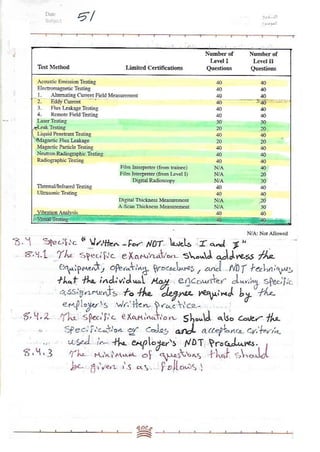 Date
Subject
51
Number of Number of
Level I Level II
Test Method Limited Certifications Questions Questions
Acoustic Emission Testing 40 40
Electromagnetic Testing 40 40
1. Alternating Current Field Measurement 40 40
2. Eddy Current 40 40
3. Flux Leakage Testing 40 40
4. Remote Field Testing 40 40
Laser Testing 30 30
Leak Testing 20 20
Liquid Penetrant Testing 40 40
Magnetic Flux Leakage 20 20
Magnetic Particle Testing 40 40
Neutron Radiographic Testing 40 40
Radiographic Testing 40 40
Film Interpreter (from trainee) N/A 40
Film Interpreter (from Level I) N/A 20
Digital Radiography N/A 30
Thermal/Infrared Testing 40 40
Ultrasonic Testing 40 40
Digital Thickness Measurement N/A 20
A-Scan Thickness Measurement N/A 30
Vibration Analysis 40 40
Visual Testing 40 40
N/A: Not Allowed
8.4 Specific " Written - For NDT levels I and II "
8.4.1 The specific examination should address the
equipment, operating procedures, and NDT techniques
that the individual May encounter during specific
assignments to the degree required by the
employer's written practice.
8.4.2 The specific examination should also cover the
specification or codes and acceptance criteria
used in the employer's NDT Procedures.
8.4.3 The minimum of questions that should
be given is as follows: